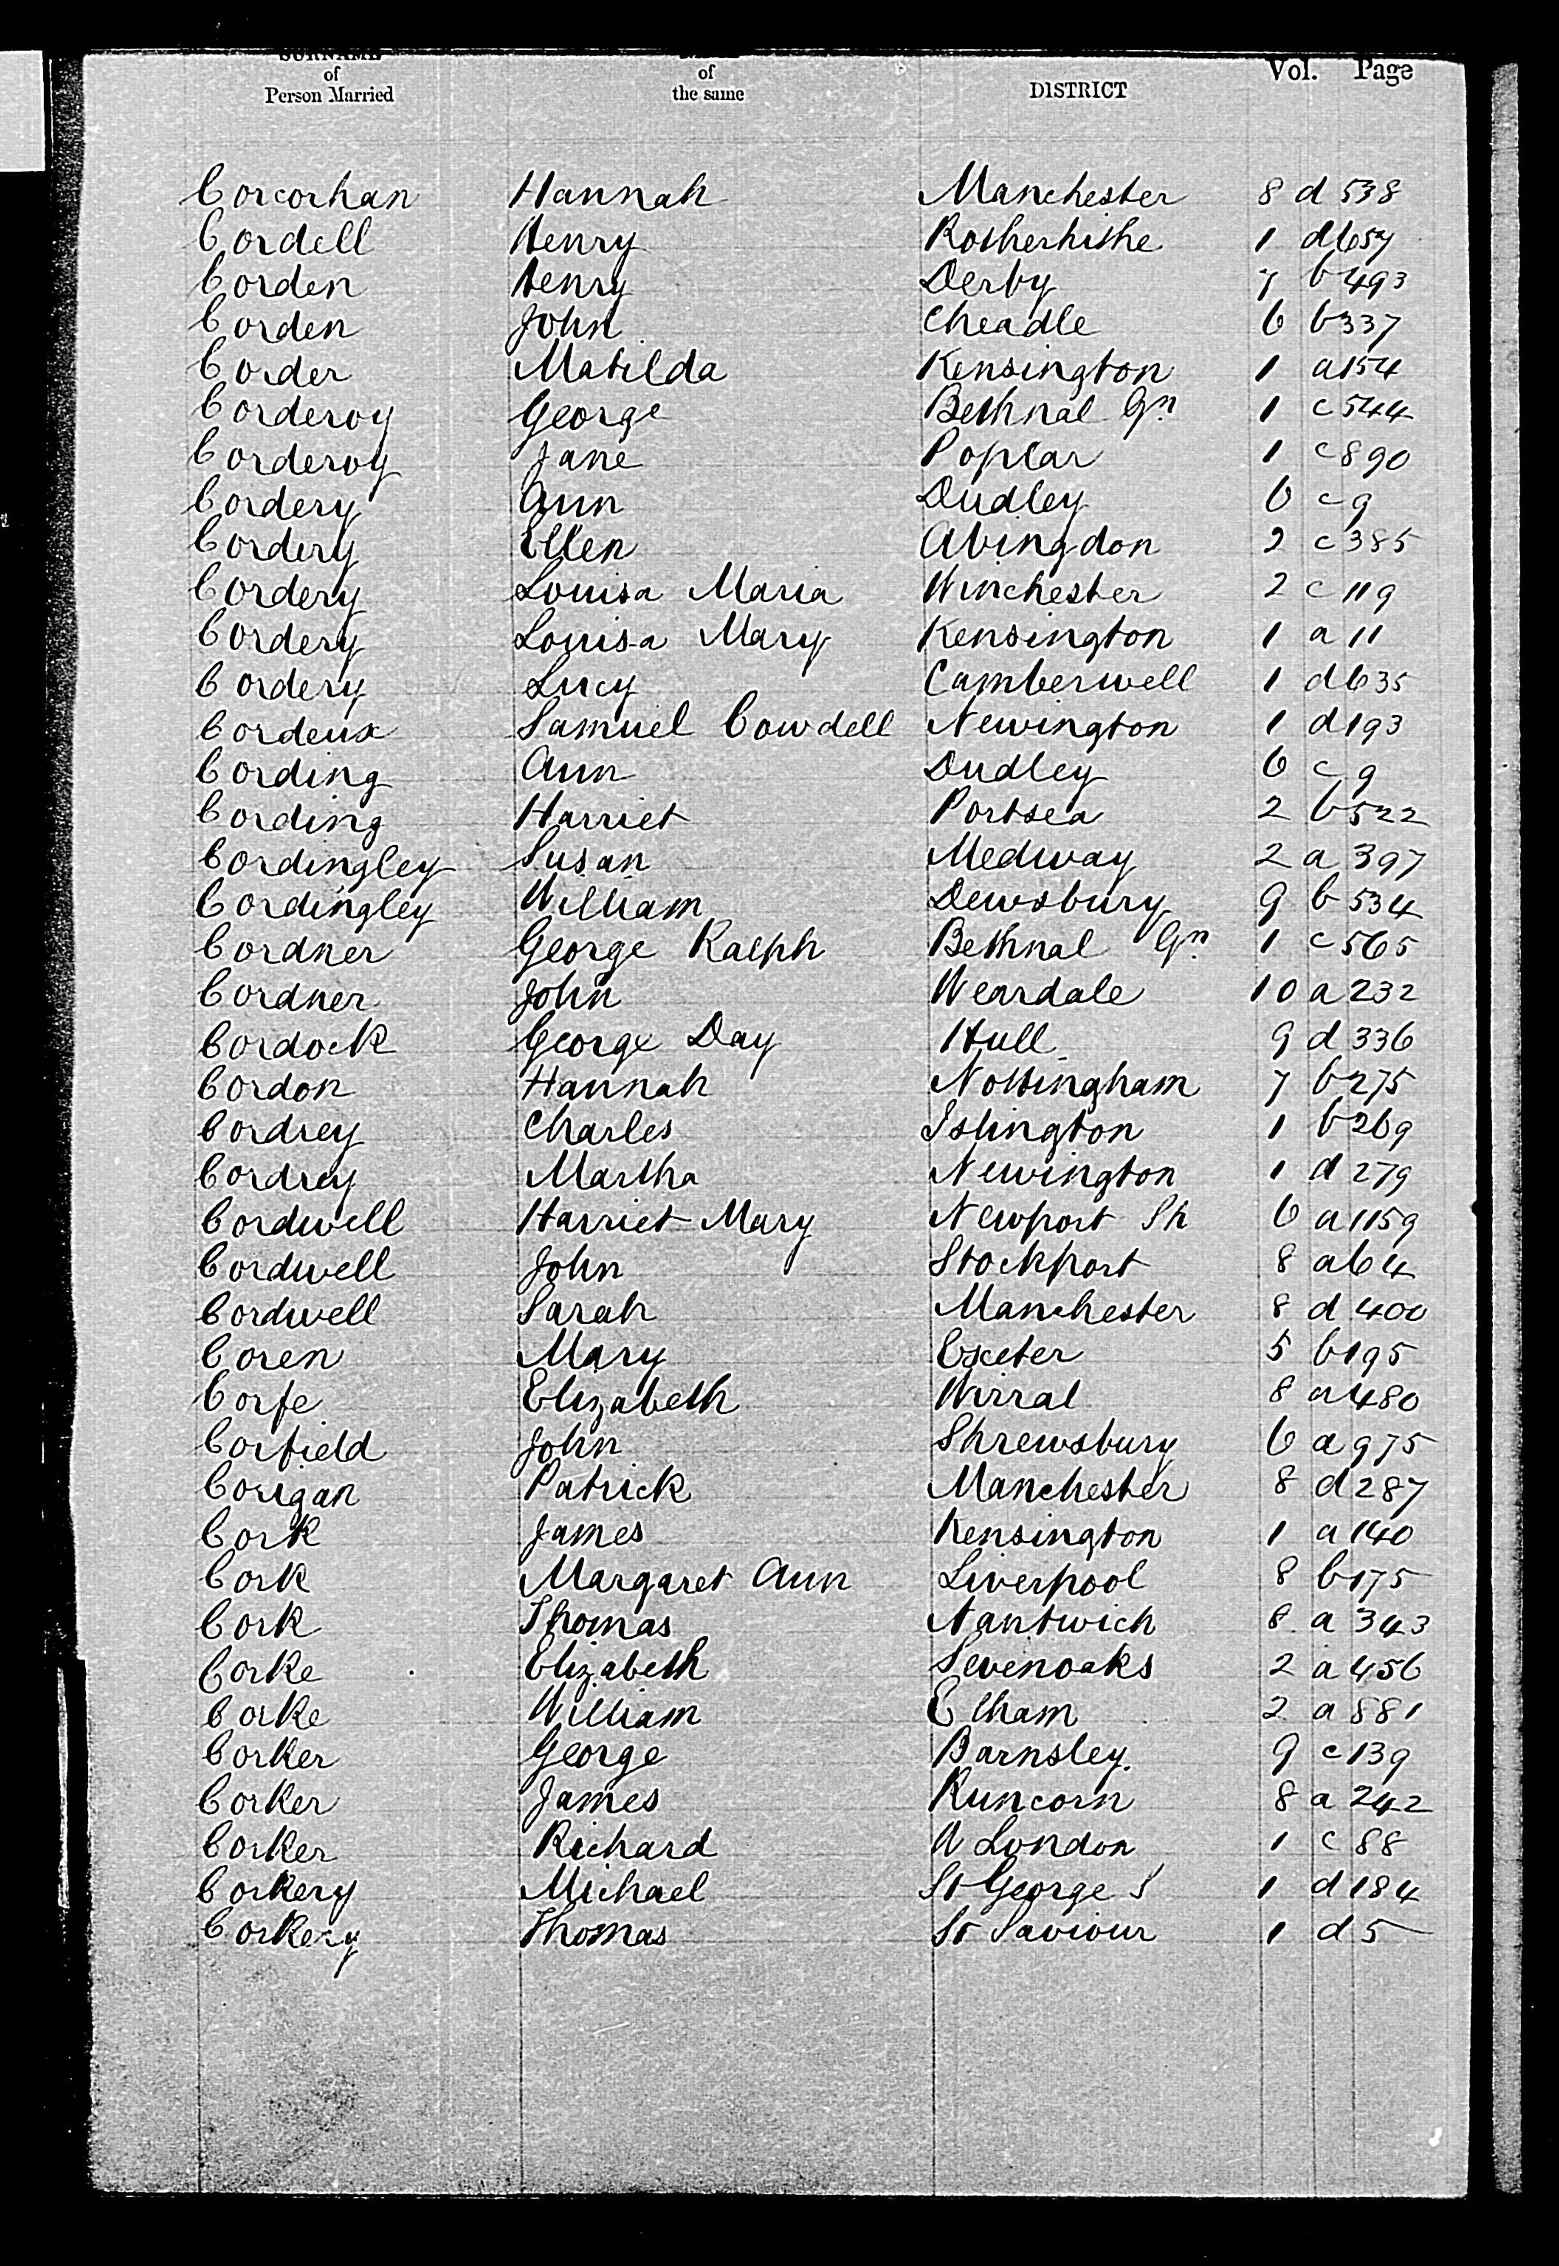 SURNAME of Person Married of the same DISTRICT Vol. Page
Corcorhan Hannah Manchester 8 d 538
Cordell Henry Rotherhithe 1 d 657
Corden Henry Derby 7 b 493
Corden John Cheadle 6 b 337
Corder Matilda Kensington 1 a 154
Corderoy George Bethnal Gn 1 c 544
Corderoy Jane Poplar 1 c 890
Cordery Ann Dudley 6 c 9
Cordery Ellen Abingdon 2 c 385
Cordery Louisa Maria Winchester 2 c 119
Cordery Louisa Mary Kensington 1 a 11
Cordery Lucy Camberwell 1 d 635
Cordeux Samuel Cowdell Newington 1 d 193
Cording Ann Dudley 6 c 9
Cording Harriet Portsea 2 b 522
Cordingley Susan Medway 2 a 397
Cordingley William Dewsbury 9 b 534
Cordner George Ralph Bethnal Gn 1 c 565
Cordner John Weardale 10 a 232
Cordock George Day Hull 9 d 336
Cordon Hannah Nottingham 7 b 275
Cordrey Charles Islington 1 b 269
Cordrey Martha Newington 1 d 279
Cordwell Harriet Mary Newport Sh 6 a 1159
Cordwell John Stockport 8 a 64
Cordwell Sarah Manchester 8 d 400
Coren Mary Exeter 5 b 195
Corfe Elizabeth Wirral 8 a 480
Corfield John Shrewsbury 6 a 975
Corigan Patrick Manchester 8 d 287
Cork James Kensington 1 a 140
Cork Margaret Ann Liverpool 8 b 175
Cork Thomas Nantwich 8 a 343
Corke Elizabeth Sevenoaks 2 a 456
Corke William Elham 2 a 881
Corker George Barnsley 9 c 139
Corker James Runcorn 8 a 242
Corker Richard W London 1 c 88
Corkery Michael St George S 1 d 184
Corkery Thomas St Saviour 1 d 5